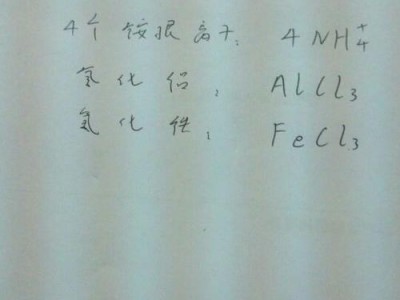 4个铵根离子: 4NH₄⁺
氯化铝: AlCl₃
氯化铁: FeCl₃